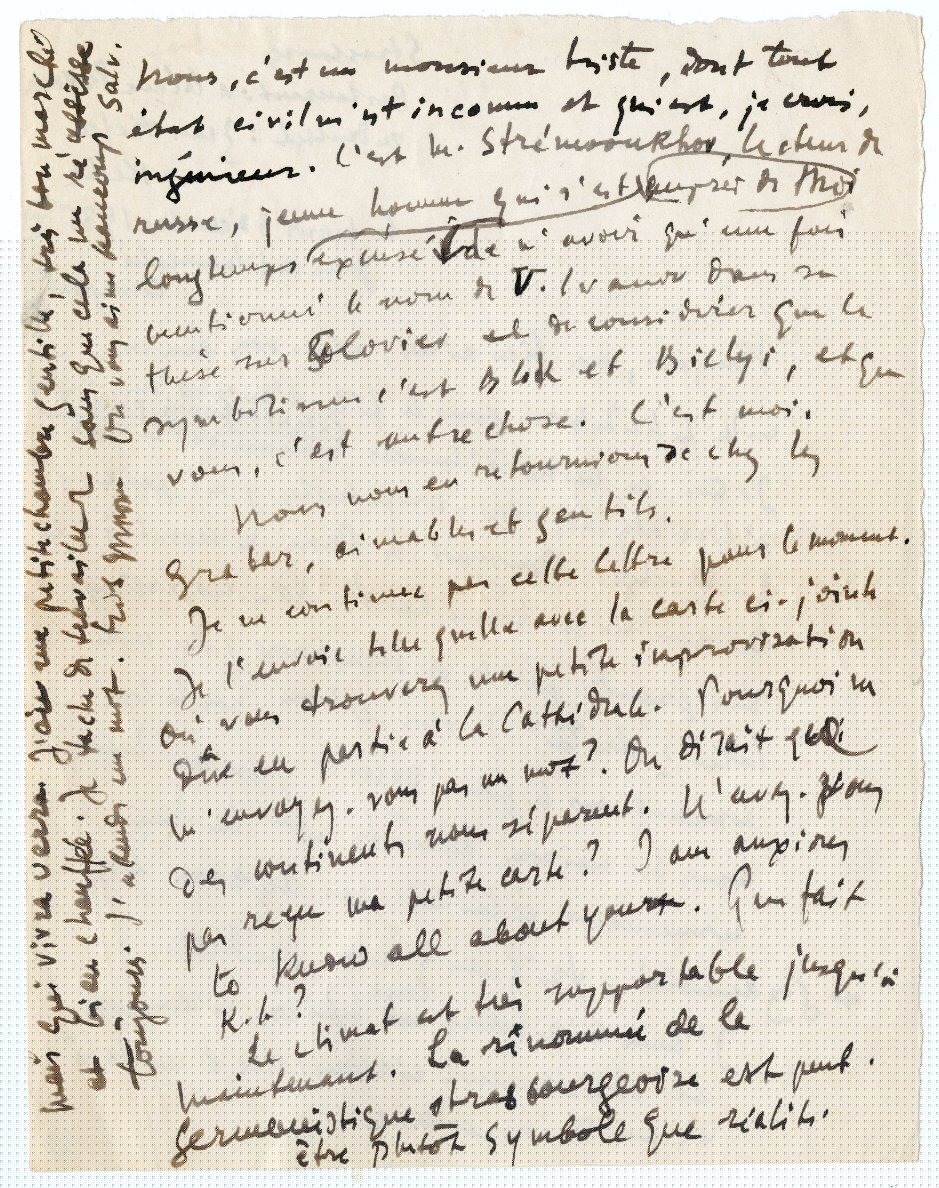 nous, c'est un monsieur triste, dont tout
état civil m'est inconnu et qui est, je crois,
ingénieur. C'est M. Strémooukhov, lecteur de
russe, jeune homme qui s'est auprès de moi
longtemps excusé de n'avoir qu'une fois
mentionné le nom de V. Ivanov dans sa
thèse sur Soloviev et de considérer que le
symbolisme c'est Blok et Bielyi, et que
vous, c'est autre chose. C'est moi.
Nous nous en retournions de chez les
Grabar, aimables et gentils.
Je ne continue pas cette lettre pour le moment.
Je l'envoie telle quelle avec la carte ci-jointe
où vous trouverez une petite improvisation
dûe en partie à la Cathédrale. Pourquoi ne
m'envoyez-vous pas un mot? On dirait que
des continents nous séparent. N'avez-vous
pas reçu ma petite carte? I am anxious
to know all about yours. Que fait
K.L?
Le climat est très supportable jusqu'à
maintenant. La renommée de la
germanistique strasbourgeoise est peut-
être plutôt symbole que réalité.
mais qui vivra verra. J'ai une petite chambre gentille, très bon marché
et bien chauffée. Je tache de travailler sans que cela me réussisse
toujours. J'attends un mot. Très On vous aime beaucoup Salv.